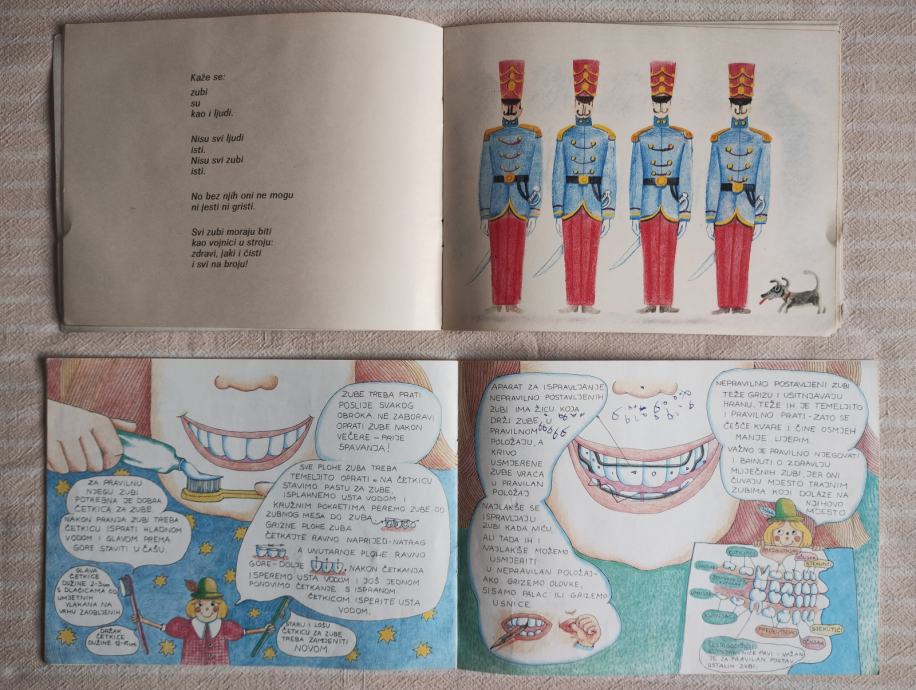 Kaže se:
zubi
su
kao i ljudi.
Nisu svi ljudi
isti.
Nisu svi zubi
isti.
No bez njih oni ne mogu
ni jesti ni gristi.
Svi zubi moraju biti
kao vojnici u stroju:
zdravi, jaki i čisti
i svi na broju!
ZUBE TREBA PRATI
POSLIJE SVAKOG
OBROKA. NE ZABORAVI
OPRATI ZUBE NAKON
VEČERE – PRIJE
SPAVANJA!
SVE PLOHE ZUBA TREBA
TEMELJITO OPRATI – NA ČETKICU
STAVIMO PASTU ZA ZUBE,
ISPLAHNEMO USTA VODOM I
KRUŽNIM POKRETIMA PEREMO ZUBE OD
ZUBNOG MESA DO ZUBA
GRIZNE PLOHE ZUBA
ČETKAJTE RAVNO NAPRIJED-NATRAG
A UNUTARNJE PLOHE RAVNO
GORE-DOLJE. NAKON ČETKANJA
ISPEREMO USTA VODOM I JOŠ JEDNOM
PONOVIMO ČETKANJE. S ISPRANOM
ČETKICOM ISPERITE USTA
VODOM.
ZA PRAVILNU
NJEGU ZUBI
POTREBNA JE DOBRA
ČETKICA ZA ZUBE.
NAKON PRANJA ZUBI TREBA
ČETKICU ISPRATI HLADNOM
VODOM I GLAVOM PREMA
GORE STAVITI U ČAŠU.
GLAVA
ČETKICE
DUŽINE 2-3cm
S DLAČICAMA OD
UMJETNIH
VLAKANA NA
VRHU ZAOBLJENIH
DRŽAK
ČETKICE
DUŽINE
STARU I LOŠU
ČETKICU ZA ZUBE
TREBA ZAMIJENITI
NOVOM.
APARAT ZA ISPRAVLJANJE
NEPRAVILNO POSTAVLJENIH
ZUBI IMA ŽICU KOJA
DRŽI ZUBE U
PRAVILNOM
POLOŽAJU, A
KRIVO
USMJERENE
ZUBE VRAĆA
U PRAVILAN
POLOŽAJ
NAJLAKŠE SE
ISPRAVLJAJU
ZUBI KADA NIČU,
ALI TADA IH I
NAJLAKŠE MOŽEMO
USMJERITI
U NEPRAVILAN POLOŽAJ-
AKO GRIZEMO OLOVKE,
SIŠEMO PALAC ILI GRIZEMO
USNICE.
NEPRAVILNO POSTAVLJENI ZUBI
TEŽE GRIZU I USITNJAVAJU
HRANU. TEŽE IH JE TEMELJITO
I PRAVILNO PRATI-ZATO SE
ČEŠĆE KVARE I ČINE OSMJEH
MANJE LIJEPIM.
VAŽNO JE PRAVILNO NJEGOVATI
I BRINUTI O ZDRAVLJU
MLIJEČNIH ZUBI JER ONI
ČUVAJU MJESTO TRAJNIM
ZUBIMA KOJI DOLAZE NA
NJIHOVO
MJESTO
SJEKUTIĆ